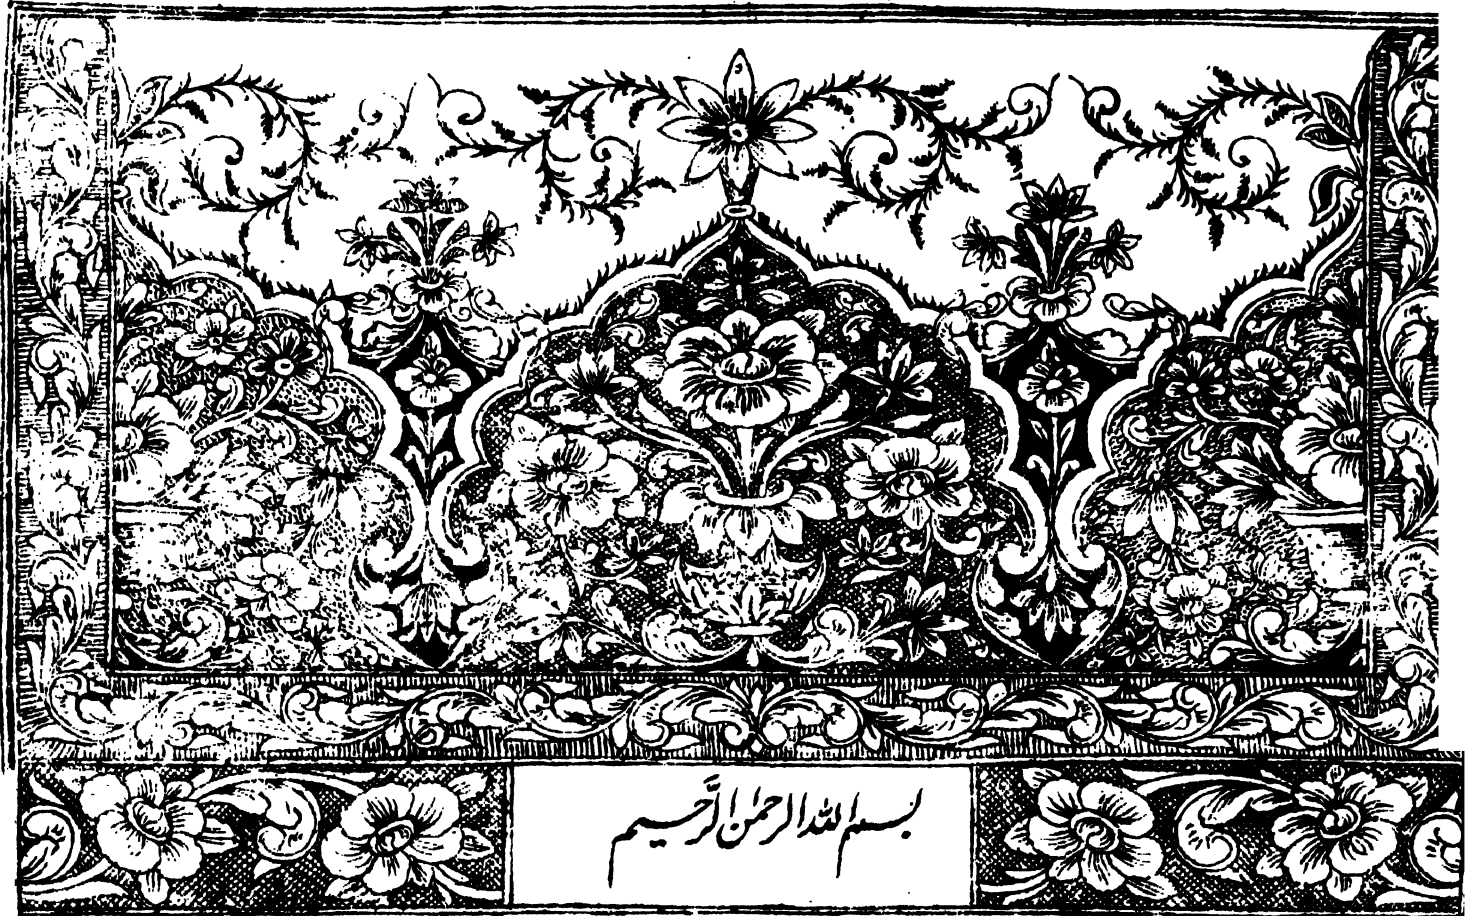 بسم الله الرحمن الرَّحیم